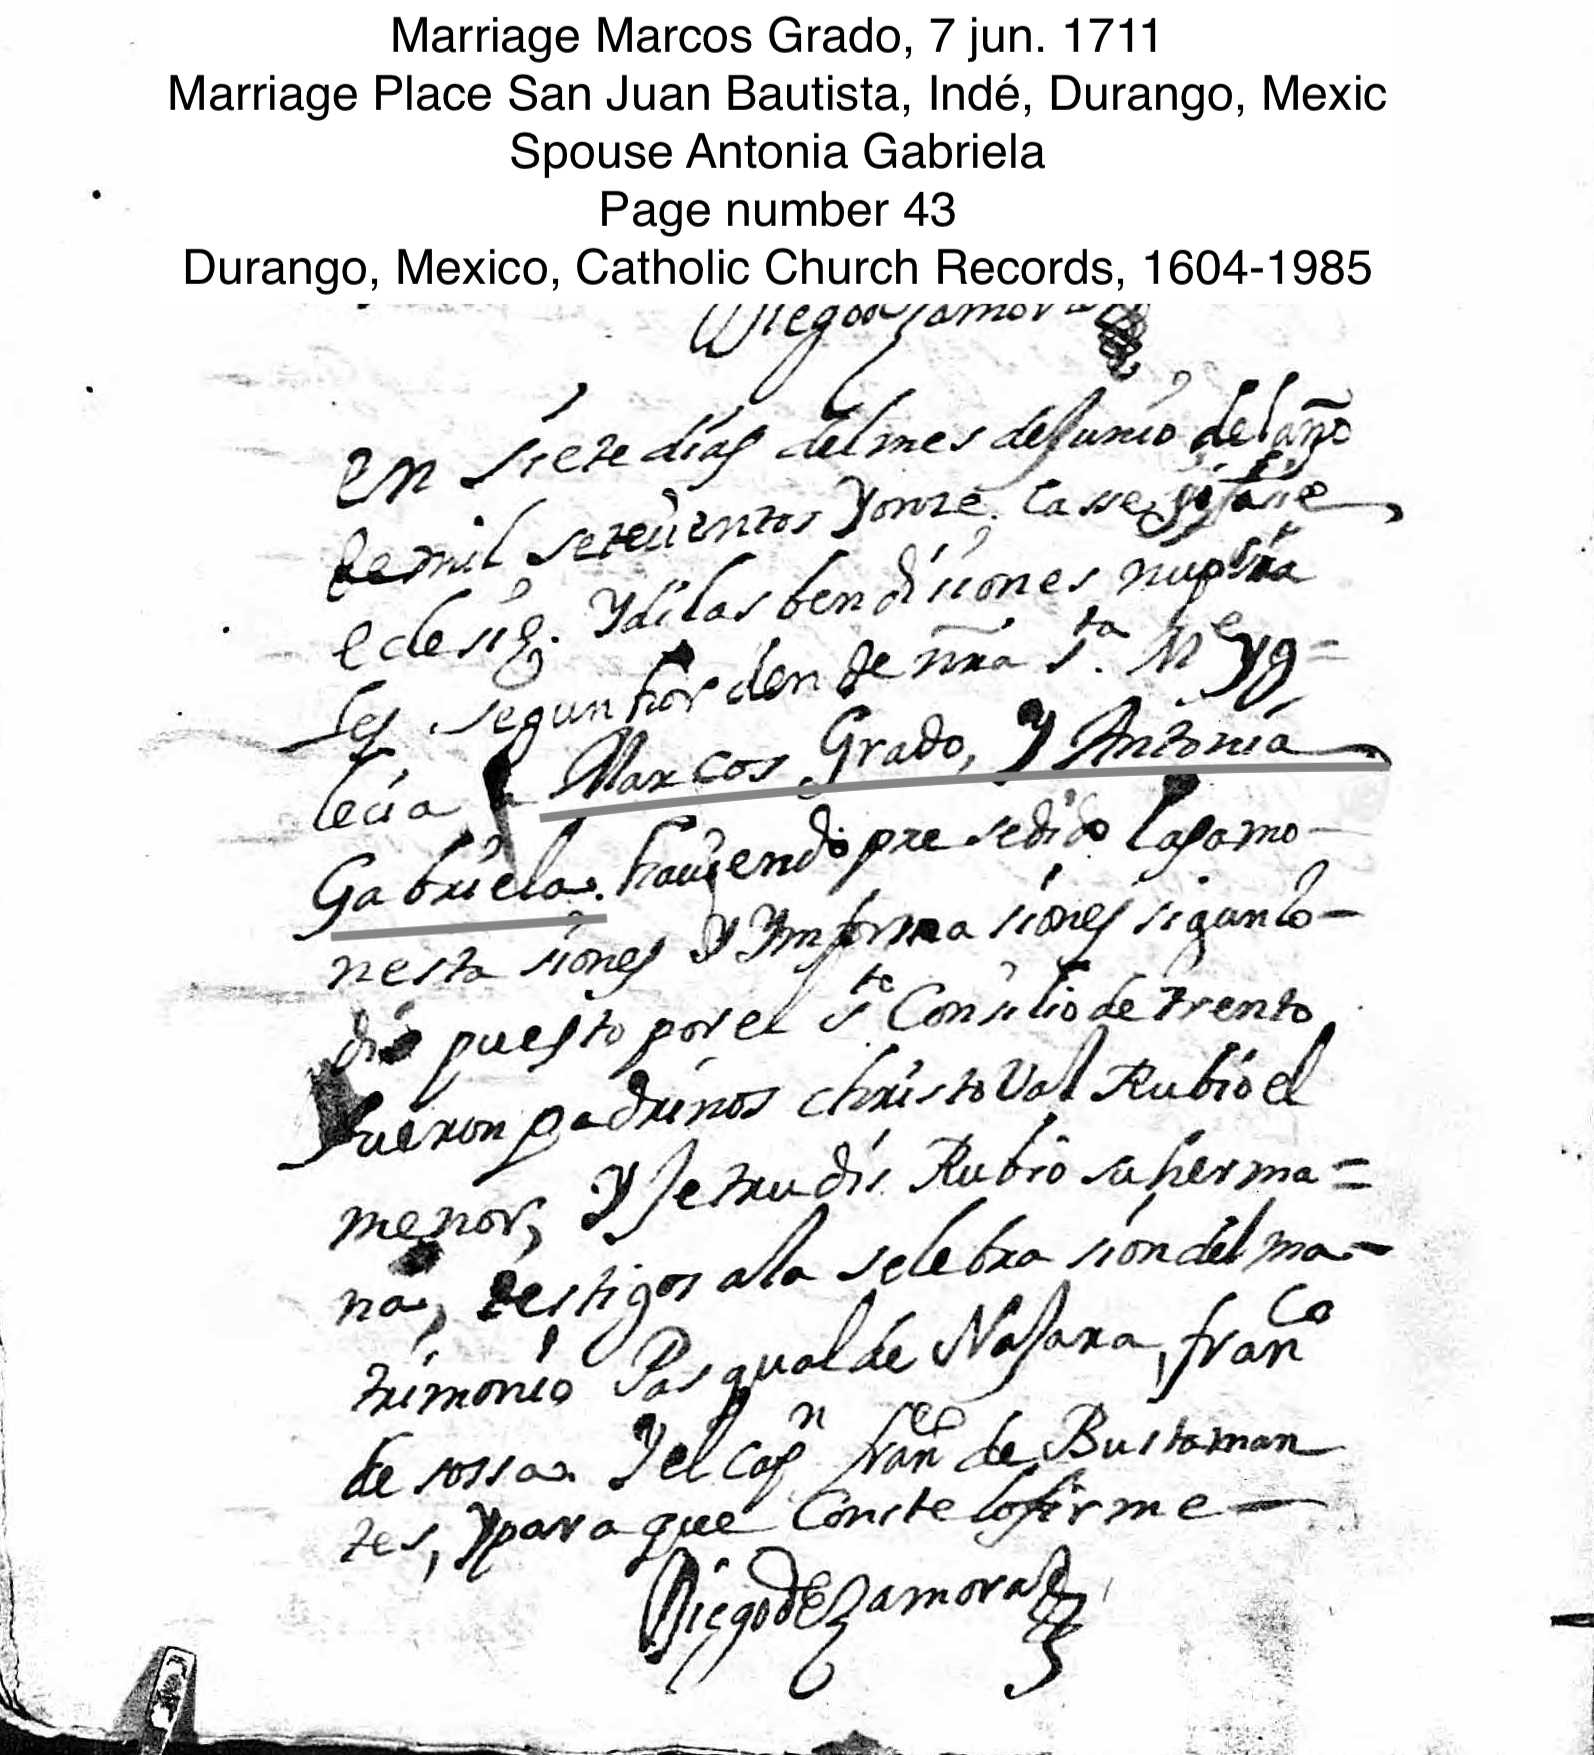 Marriage Marcos Grado, 7 jun. 1711
Marriage Place San Juan Bautista, Indé, Durango, Mexic
Spouse Antonia Gabriela
Page number 43
Durango, Mexico, Catholic Church Records, 1604-1985
Diego de Zamora
en siete dias del mes de Junio del año
de mil setecientos y onze. Casse
y di las bendiciones nupsia
les segun horden de nrã Sta. Me yg=
lecia a Marcos Grado, y Antonia
Gabriela. haviendo presedido las amo-
nestasiones y Ynformasiones sigun lo-
dispuesto por el Sto Consilio de trento
fueron padrinos christoval Rubio el
menor, y Jetrudis Rubio su herma=
na, testigos a la selebrasion del ma-
trimonio Pasqual de Najara, franco
de sossa. y el capn franco de Bustaman
tes, y para que Conste lo firme
Diego de Zamora